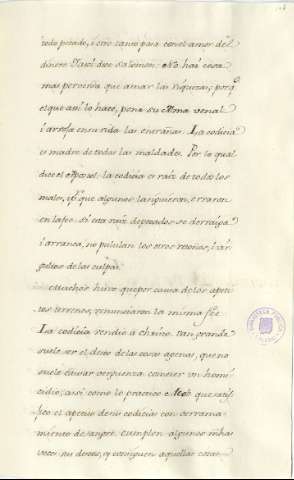 todo pecado, i otro tanto para con el amor del
dinero. Aqui dice Salomon: No hai cosa
mas perversa que amar las riquezas; porq.
el que asi lo hace, pone su Alma venal
i arroja en su vida las entrañas. La codicia
es madre de todas las maldades. Por lo qual
dice el Apostol: la codicia es raíz de todos los
males, q.e que algunos la apuieran, erraron
en la fee. Si esta raíz de pecados se derraiga
i arranca, no pululan los otros retoños, i var-
getios de las culpas.
Muchos huvo que por causa de los apeti-
tos terrenos, renunciaron la misma fee.
La codicia vendió a Christo. Tan grande
suele ser el deseo de las cosas agenas, que no
suele causar verguenza cometer un homi-
cidio; asi como lo practicó Acab que satis-
fizo el apetito de sus codicias con derrama-
miento de sangre. Cumplen algunos mchas
veces sus deseos, y consiguen aquellas cosas